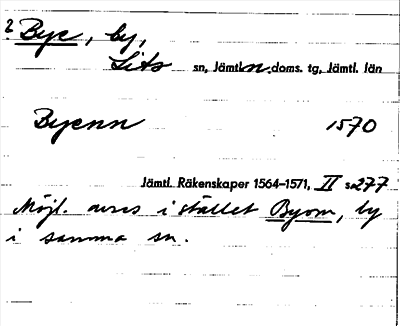 ? Bye, by,
Lits sn, Jämtl. n. doms. tg, Jämtl. län
Byenn 1570
Jämtl. Räkenskaper 1564–1571, II s. 277
Möjl. avses i stället Byom, by
i samma sn.